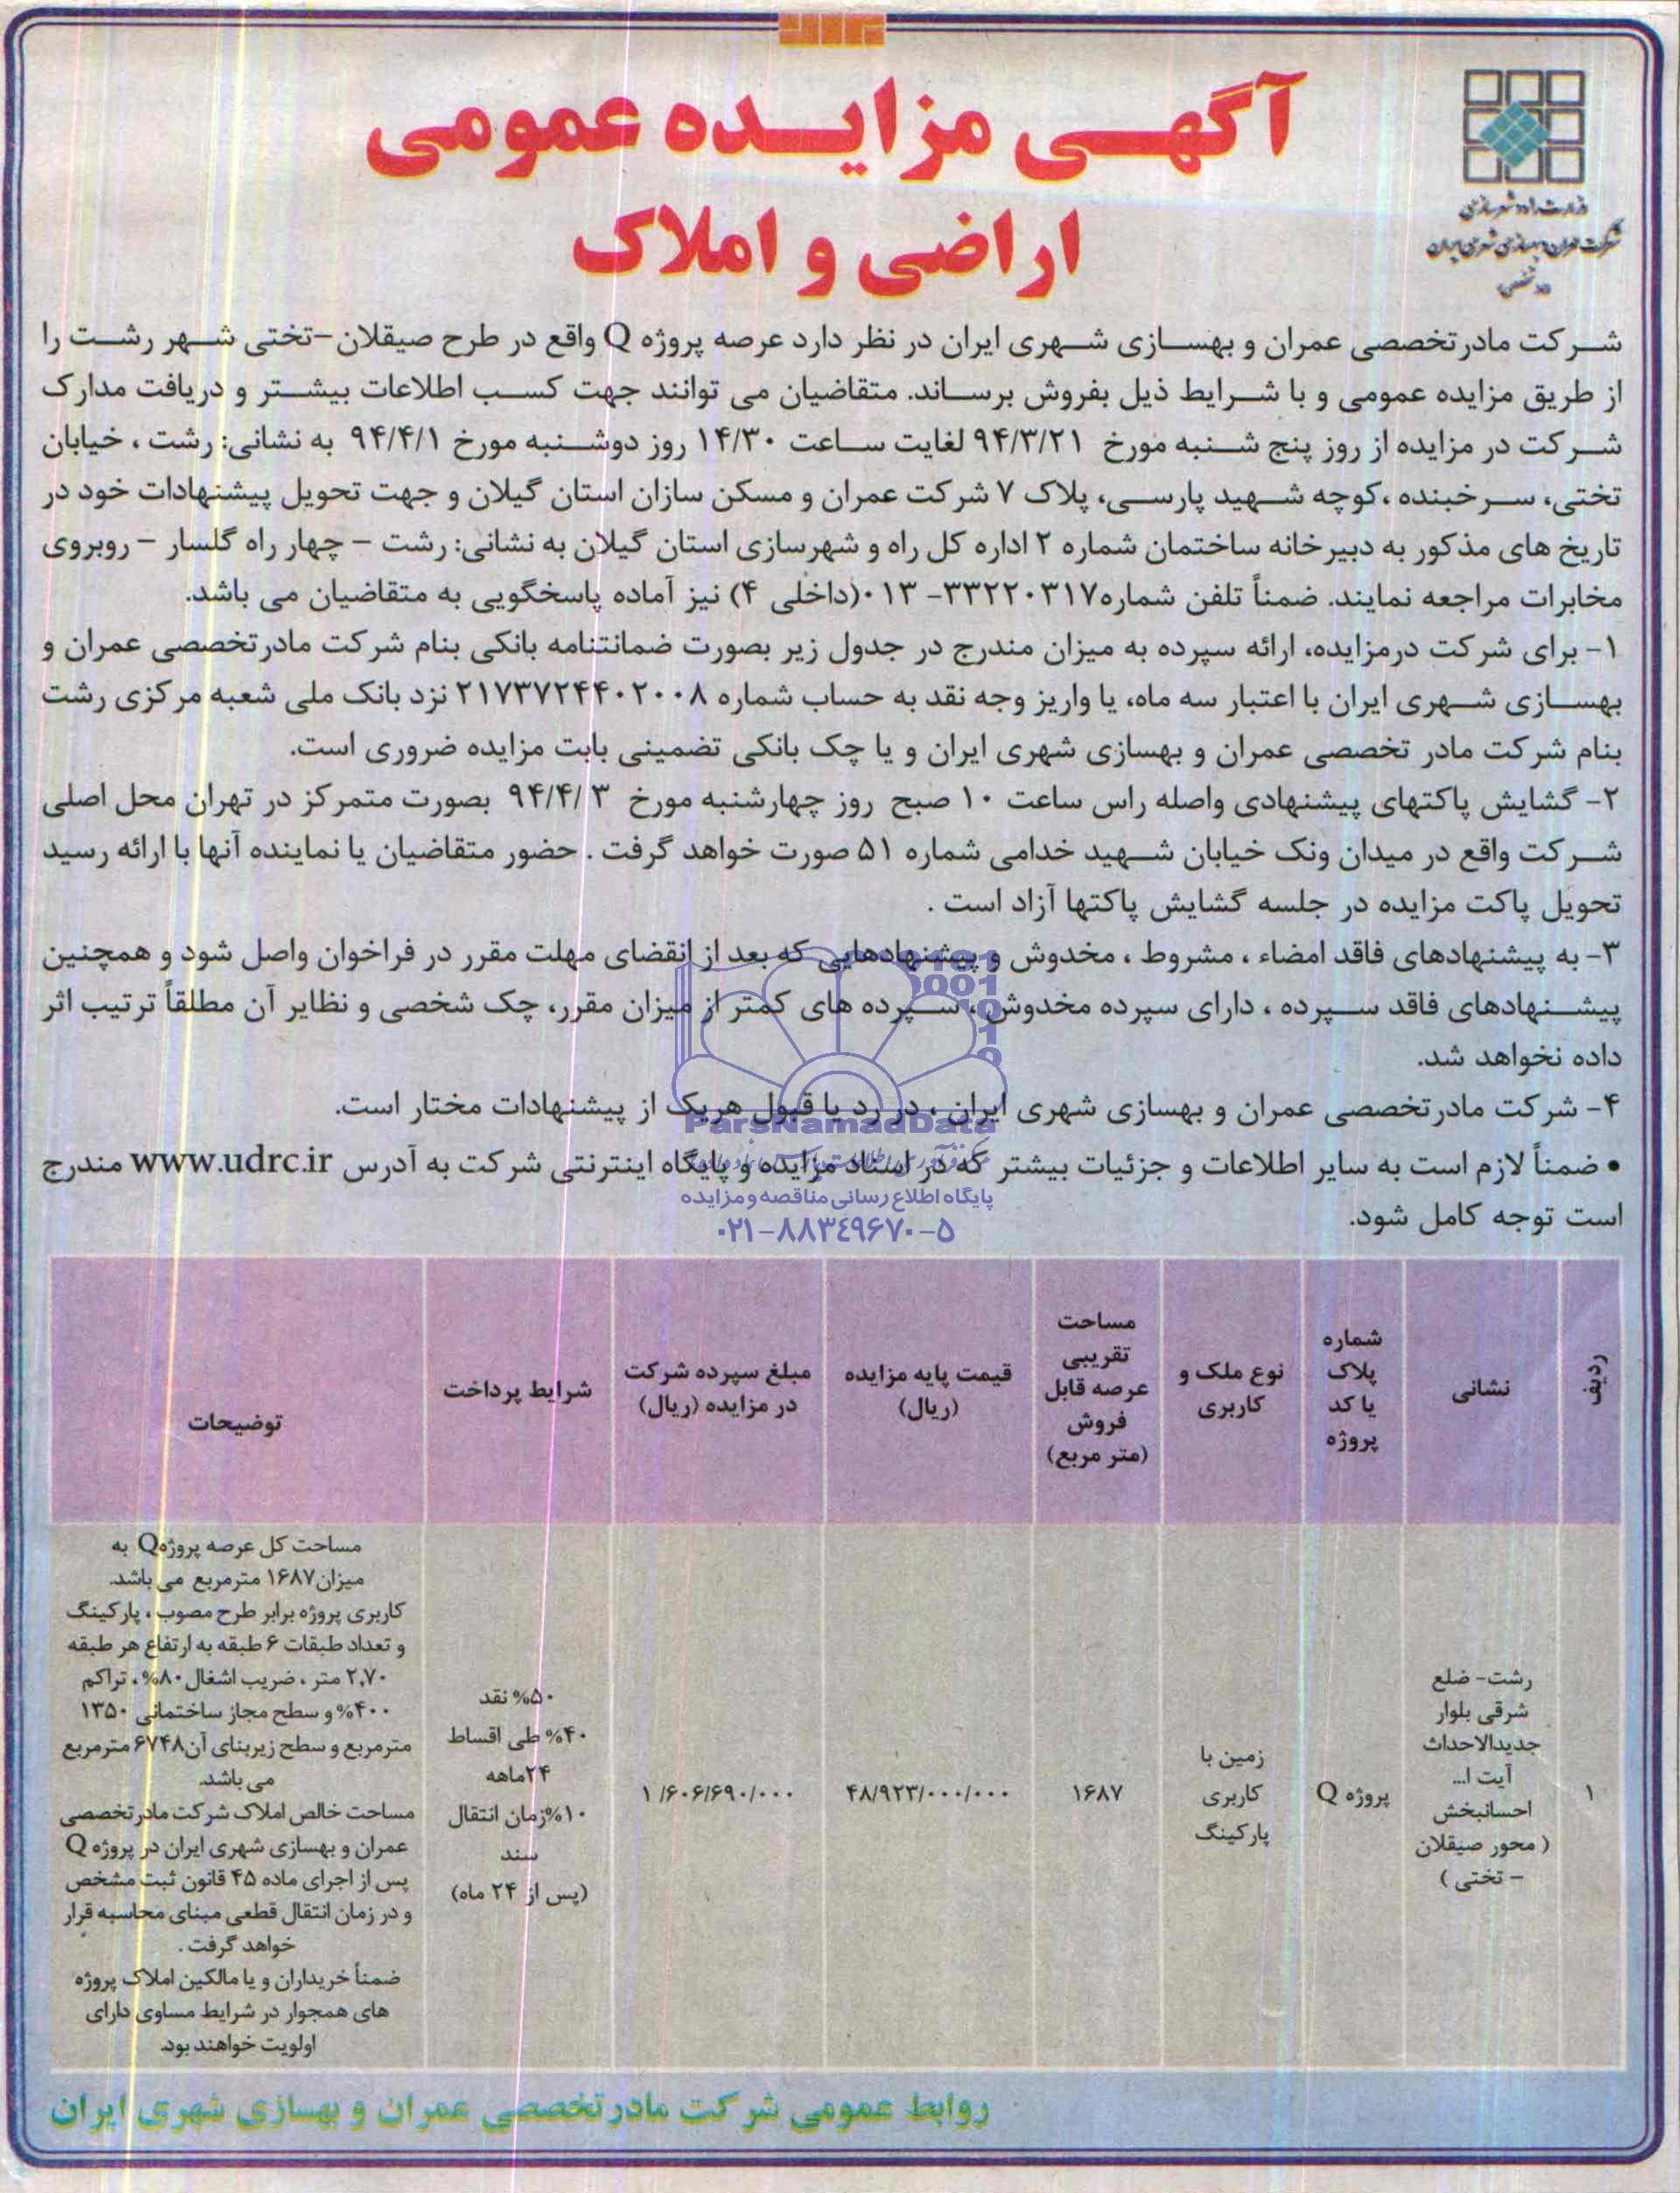 آگهی مزایده عمومی
اراضی و املاک
وزارت راه و شهرسازی
شرکت عمران و بهسازی شهری ایران
شرکت مادرتخصصی عمران و بهسازی شهری ایران در نظر دارد عرصه پروژه Q واقع در طرح صیقلان-تختی شهر رشت را
از طریق مزایده عمومی و با شرایط ذیل بفروش برساند. متقاضیان می توانند جهت کسب اطلاعات بیشتر و دریافت مدارک
شرکت در مزایده از روز پنج شنبه مورخ ۹۴/۳/۲۱ لغایت ساعت ۱۴/۳۰ روز دوشنبه مورخ ۹۴/۴/۱ به نشانی: رشت ، خیابان
تختی، سرخبنده ،کوچه شهید پارسی، پلاک ۷ شرکت عمران و مسکن سازان استان گیلان و جهت تحویل پیشنهادات خود در
تاریخ های مذکور به دبیرخانه ساختمان شماره ۲ اداره کل راه و شهرسازی استان گیلان به نشانی: رشت - چهار راه گلسار - روبروی
مخابرات مراجعه نمایند. ضمناً تلفن شماره۳۳۲۲۰۳۱۷- ۰۱۳(داخلی ۴) نیز آماده پاسخگویی به متقاضیان می باشد.
۱- برای شرکت درمزایده، ارائه سپرده به میزان مندرج در جدول زیر بصورت ضمانتنامه بانکی بنام شرکت مادرتخصصی عمران و
بهسازی شهری ایران با اعتبار سه ماه، یا واریز وجه نقد به حساب شماره ۲۱۷۳۷۲۴۴۰۲۰۰۸ نزد بانک ملی شعبه مرکزی رشت
بنام شرکت مادر تخصصی عمران و بهسازی شهری ایران و یا چک بانکی تضمینی بابت مزایده ضروری است.
۲- گشایش پاکتهای پیشنهادی واصله راس ساعت ۱۰ صبح روز چهارشنبه مورخ ۹۴/۴/۳ بصورت متمرکز در تهران محل اصلی
شرکت واقع در میدان ونک خیابان شهید خدامی شماره ۵۱ صورت خواهد گرفت . حضور متقاضیان یا نماینده آنها با ارائه رسید
تحویل پاکت مزایده در جلسه گشایش پاکتها آزاد است .
۳- به پیشنهادهای فاقد امضاء ، مشروط ، مخدوش و پیشنهادهایی که بعد از انقضای مهلت مقرر در فراخوان واصل شود و همچنین
پیشنهادهای فاقد سپرده ، دارای سپرده مخدوش، سپرده های کمتر از میزان مقرر، چک شخصی و نظایر آن مطلقاً ترتیب اثر
داده نخواهد شد.
۴- شرکت مادرتخصصی عمران و بهسازی شهری ایران ، در رد یا قبول هریک از پیشنهادات مختار است.
ParsNamadData
• ضمناً لازم است به سایر اطلاعات و جزئیات بیشتر که در اسناد مزایده و پایگاه اینترنتی شرکت به آدرس www.udrc.ir مندرج
پایگاه اطلاع رسانی مناقصه و مزایده
است توجه کامل شود.
۰۲۱-۸۸۳۴۹۶۷۰-۵
ردیف
نشانی
شماره
پلاک
یا کد
پروژه
نوع ملک و
کاربری
مساحت
تقریبی
عرصه قابل
فروش
(متر مربع)
قیمت پایه مزایده
(ریال)
مبلغ سپرده شرکت
در مزایده (ریال)
شرایط پرداخت
توضیحات
۱
رشت- ضلع
شرقی بلوار
جدیدالاحداث
آیت ا...
احسانبخش
( محور صیقلان
- تختی )
پروژه Q
زمین با
کاربری
پارکینگ
۱۶۸۷
۴۸/۹۲۳/۰۰۰/۰۰۰
۱/۶۰۶/۶۹۰/۰۰۰
۵۰% نقد
۴۰% طی اقساط
۲۴ماهه
۱۰%زمان انتقال
سند
(پس از ۲۴ ماه)
مساحت کل عرصه پروژهQ به
میزان۱۶۸۷ مترمربع می باشد.
کاربری پروژه برابر طرح مصوب ، پارکینگ
و تعداد طبقات ۶ طبقه به ارتفاع هر طبقه
۲,۷۰ متر ، ضریب اشغال ۸۰% ، تراکم
۴۰۰% و سطح مجاز ساختمانی ۱۳۵۰
مترمربع و سطح زیربنای آن۶۷۴۸ مترمربع
می باشد.
مساحت خالص املاک شرکت مادرتخصصی
عمران و بهسازی شهری ایران در پروژه Q
پس از اجرای ماده ۴۵ قانون ثبت مشخص
و در زمان انتقال قطعی مبنای محاسبه قرار
خواهد گرفت .
ضمناً خریداران و یا مالکین املاک پروژه
های همجوار در شرایط مساوی دارای
اولویت خواهند بود.
روابط عمومی شرکت مادرتخصصی عمران و بهسازی شهری ایران